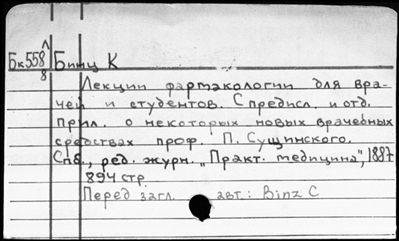 Бк 558 Л/8 Бинц К
Лекции фармакологии для вра-
чей и студентов. С предисл. и отд.
прил. о некоторых новых врачебных
средствах проф. П. Сущинского.
Спб., ред. журн. „Практ. медицина", 1887
894 стр.
Перед загл. авт.: Binz C